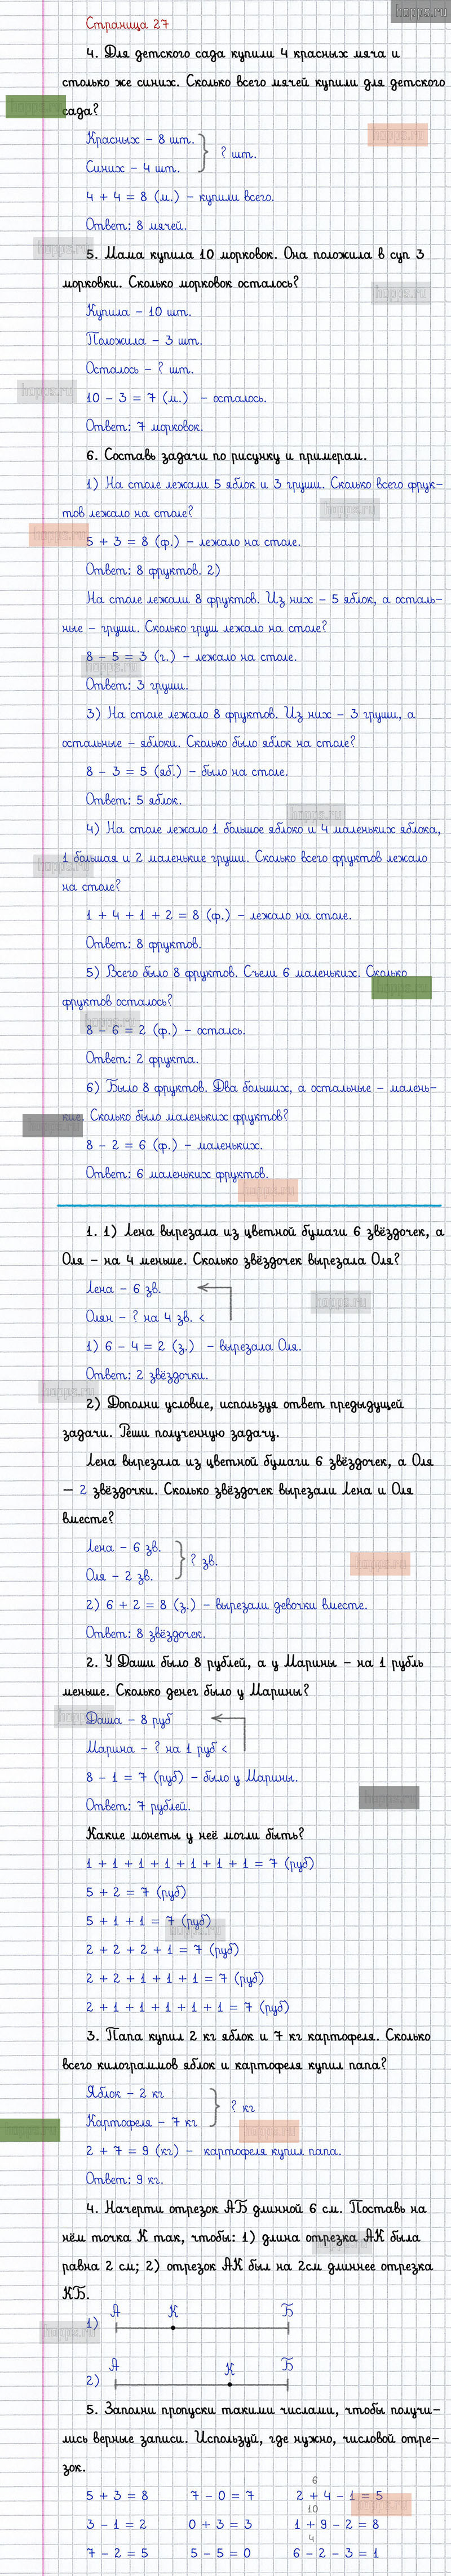 hmpps.ru
Страница 27
4. Для детского сада купили 4 красных мяча и
столько же синих. Сколько всего мячей купили для детского
сада?
Красных – 8 шт.
? шт.
Синих – 4 шт.
4 + 4 = 8 (м.) – купили всего.
Ответ: 8 мячей.
5. Мама купила 10 морковок. Она положила в суп 3
морковки. Сколько морковок осталось?
Купила – 10 шт.
Положила – 3 шт.
Осталось – ? шт.
10 – 3 = 7 (м.) – осталось.
Ответ: 7 морковок.
6. Составь задачи по рисунку и примерам.
1) На столе лежали 5 яблок и 3 груши. Сколько всего фрук–
тов лежало на столе?
5 + 3 = 8 (ф.) – лежало на столе.
Ответ: 8 фруктов. 2)
На столе лежали 8 фруктов. Из них – 5 яблок, а осталь–
ные – груши. Сколько груш лежало на столе?
8 – 5 = 3 (г.) – лежало на столе.
Ответ: 3 груши.
3) На столе лежало 8 фруктов. Из них – 3 груши, а
остальные – яблоки. Сколько было яблок на столе?
8 – 3 = 5 (яб.) – было на столе.
Ответ: 5 яблок.
4) На столе лежало 1 большое яблоко и 4 маленьких яблока,
1 большая и 2 маленькие груши. Сколько всего фруктов лежало
на столе?
1 + 4 + 1 + 2 = 8 (ф.) – лежало на столе.
Ответ: 8 фруктов.
5) Всего было 8 фруктов. Съели 6 маленьких. Сколько
фруктов осталось?
8 – 6 = 2 (ф.) – осталсь.
Ответ: 2 фрукта.
6) Было 8 фруктов. Два больших, а остальные – малень–
кие. Сколько было маленьких фруктов?
8 – 2 = 6 (ф.) – маленьких.
Ответ: 6 маленьких фруктов.
1. 1) Лена вырезала из цветной бумаги 6 звёздочек, а
Оля – на 4 меньше. Сколько звёздочек вырезала Оля?
Лена – 6 зв.
Олян – ? на 4 зв. <
1) 6 – 4 = 2 (з.) – вырезала Оля.
Ответ: 2 звёздочки.
2) Дополни условие, используя ответ предыдущей
задачи. Реши полученную задачу.
Лена вырезала из цветной бумаги 6 звёздочек, а Оля
– 2 звёздочки. Сколько звёздочек вырезали Лена и Оля
вместе?
Лена – 6 зв.
? зв.
Оля – 2 зв.
2) 6 + 2 = 8 (з.) – вырезали девочки вместе.
Ответ: 8 звёздочек.
2. У Даши было 8 рублей, а у Марины – на 1 рубль
меньше. Сколько денег было у Марины?
Даша – 8 руб
Марина – ? на 1 руб <
8 – 1 = 7 (руб) – было у Марины.
Ответ: 7 рублей.
Какие монеты у неё могли быть?
1 + 1 + 1 + 1 + 1 + 1 + 1 = 7 (руб)
5 + 2 = 7 (руб)
5 + 1 + 1 = 7 (руб)
2 + 2 + 2 + 1 = 7 (руб)
2 + 2 + 1 + 1 + 1 = 7 (руб)
2 + 1 + 1 + 1 + 1 + 1 = 7 (руб)
3. Папа купил 2 кг яблок и 7 кг картофеля. Сколько
всего килограммов яблок и картофеля купил папа?
Яблок – 2 кг
? кг
Картофеля – 7 кг
2 + 7 = 9 (кг) – картофеля купил папа.
Ответ: 9 кг.
4. Начерти отрезок АБ длинной 6 см. Поставь на
нём точка К так, чтобы: 1) длина отрезка АК была
равна 2 см; 2) отрезок АК был на 2см длиннее отрезка
КБ.
А К Б
1)
А К Б
2)
5. Заполни пропуски такими числами, чтобы получи–
лись верные записи. Используй, где нужно, числовой отре–
зок.
6
5 + 3 = 8 7 – 0 = 7 2 + 4 – 1 = 5
10
3 – 1 = 2 0 + 3 = 3 1 + 9 – 2 = 8
4
7 – 2 = 5 5 – 5 = 0 6 – 2 – 3 = 1